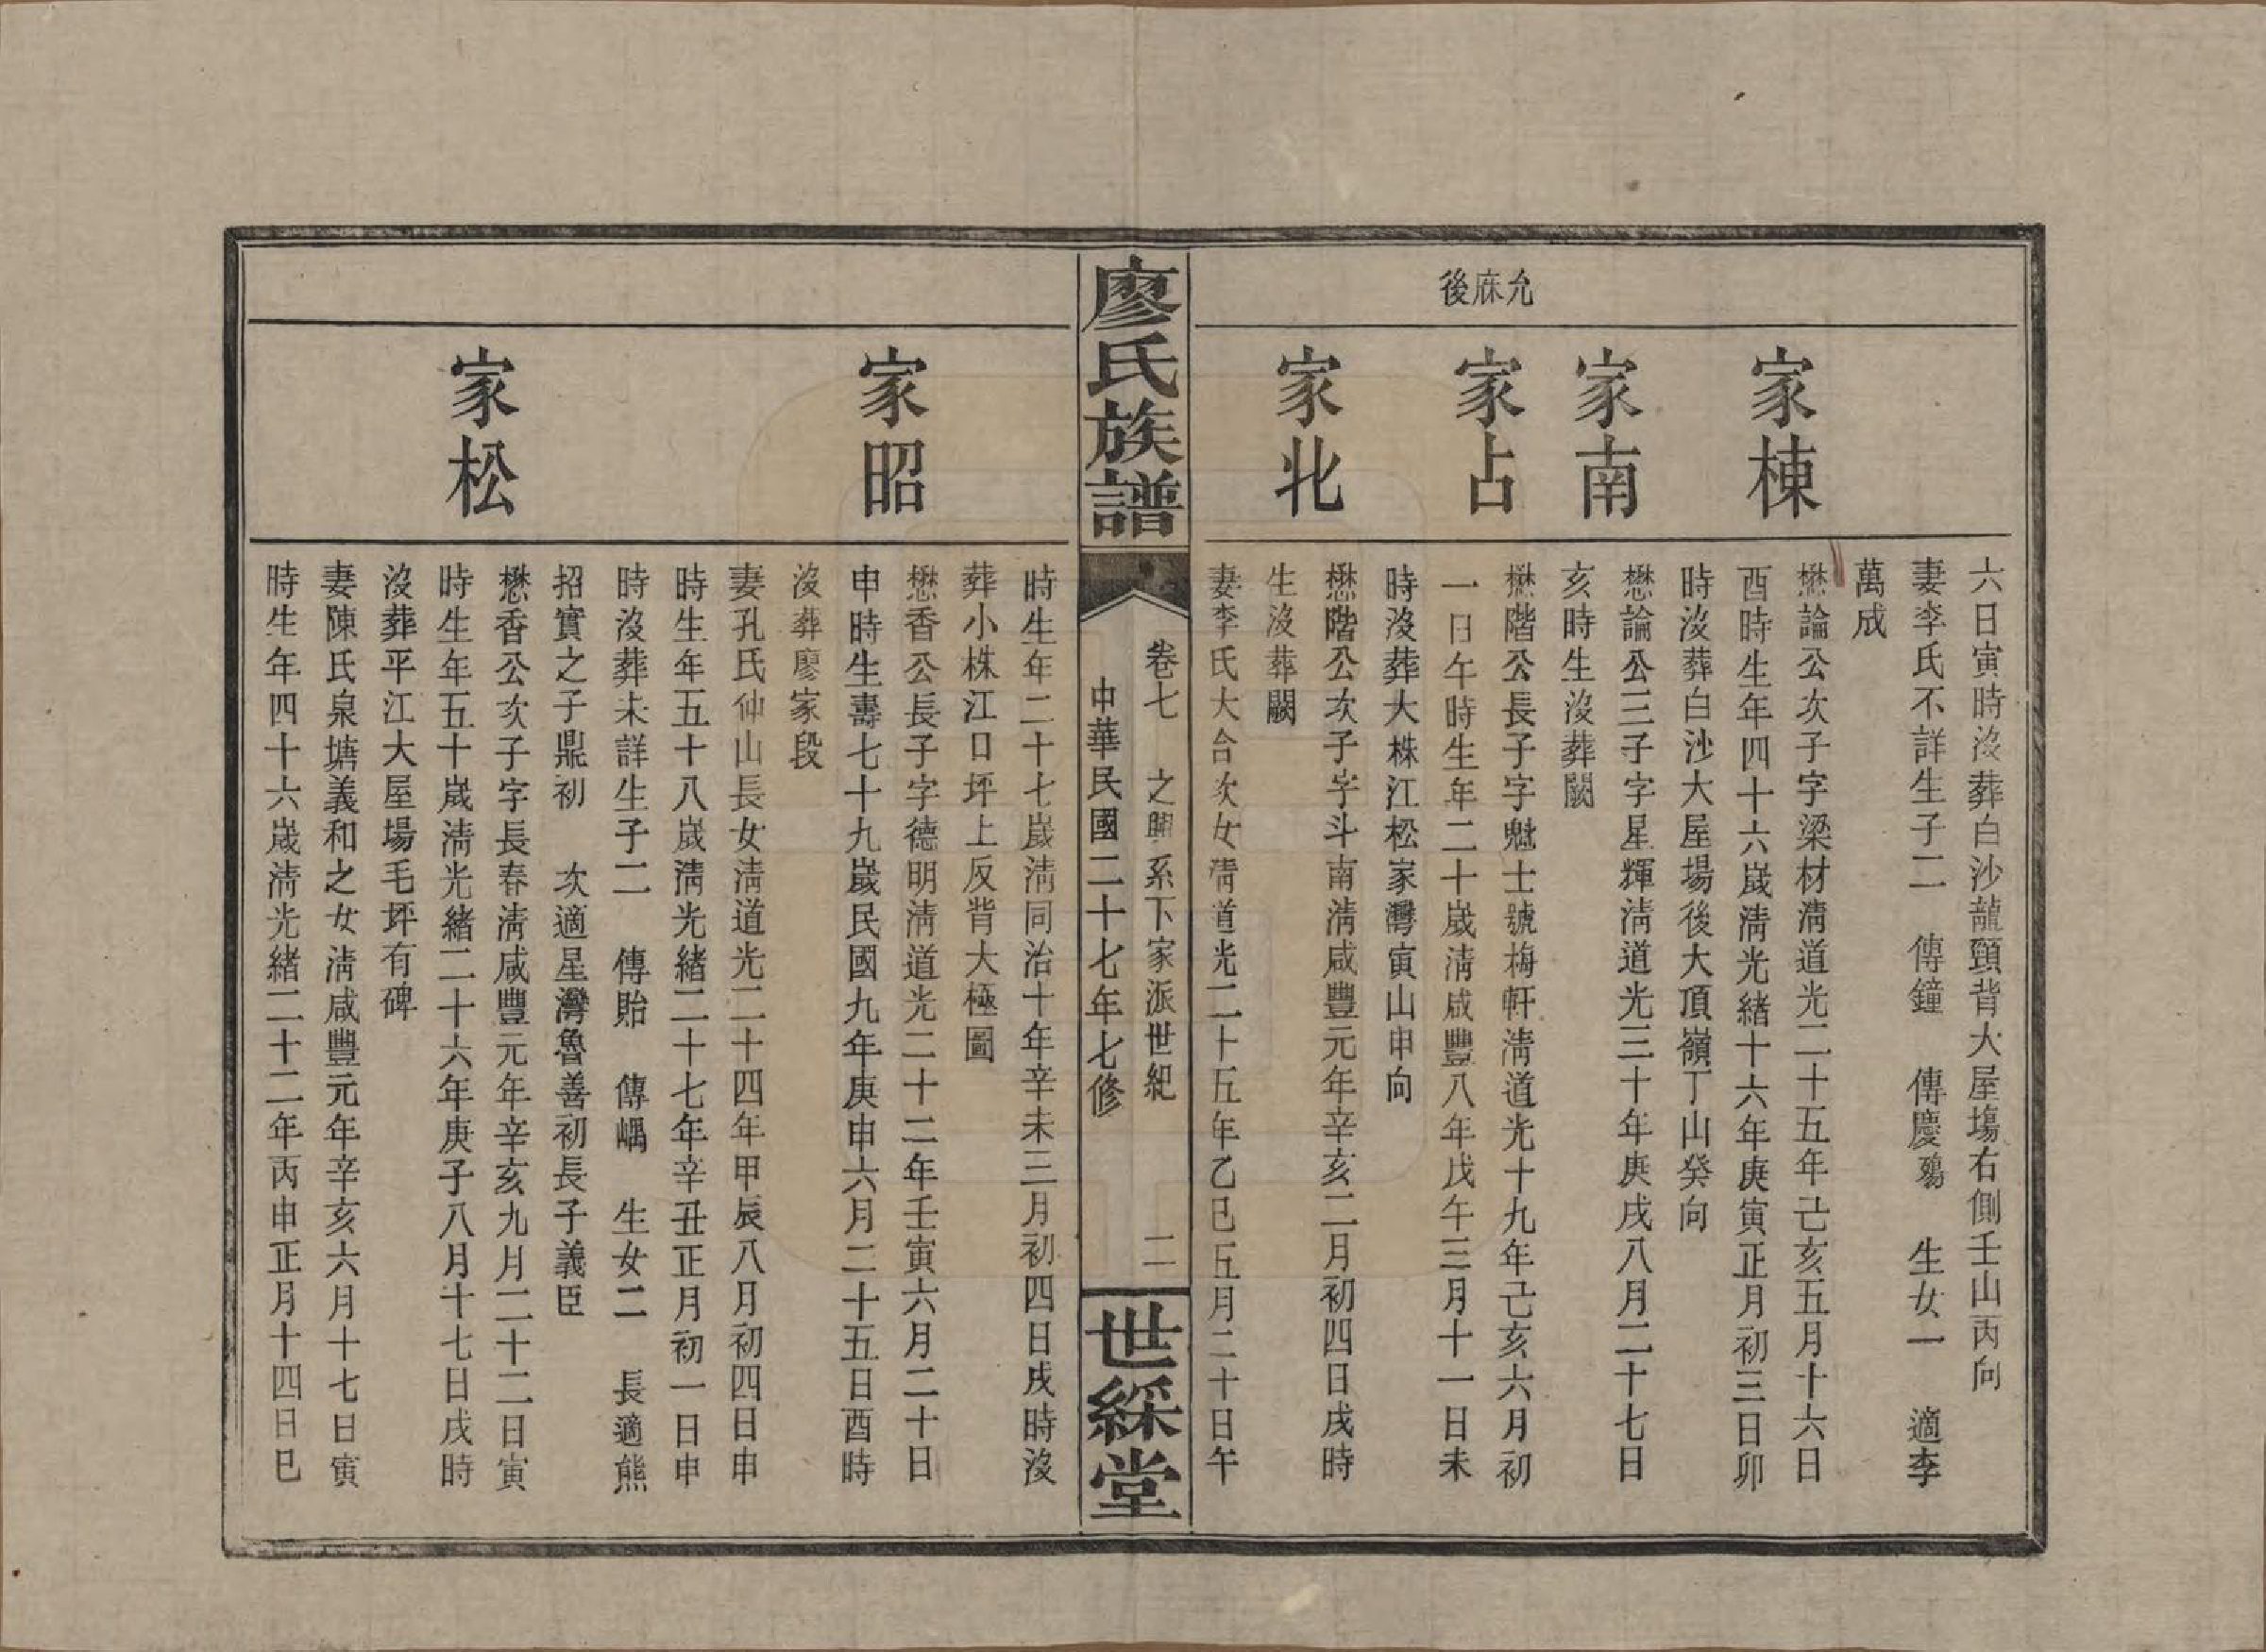 允庥後
六日寅時沒葬白沙龍頸背大屋塲右側壬山丙向
妻李氏不詳生子二 傳鐘 傳慶殤 生女一 適李
萬成
家棟
懋論公次子字梁材淸道光二十五年己亥五月十六日
酉時生年四十六歲淸光緒十六年庚寅正月初三日卯
時沒葬白沙大屋場後大頂嶺丁山癸向
家南
懋論公三子字星輝淸道光三十年庚戌八月二十七日
亥時生沒葬闕
家占
懋階公長子字魁士號梅軒淸道光十九年己亥六月初
一日午時生年二十歲淸咸豐八年戊午三月十一日未
時沒葬大株江松家灣寅山申向
家北
懋階公次子字斗南淸咸豐元年辛亥二月初四日戌時
生沒葬闕
妻李氏大合次女淸道光二十五年乙巳五月二十日午
廖氏族譜
卷七 之興系下家派世紀 二
中華民國二十七年七修
世綵堂
時生年二十七歲淸同治十年辛未三月初四日戌時沒
葬小株江口坪上反背大極圖
家昭
懋香公長子字德明淸道光二十二年壬寅六月二十日
申時生壽七十九歲民國九年庚申六月二十五日酉時
沒葬廖家段
妻孔氏仲山長女淸道光二十四年甲辰八月初四日申
時生年五十八歲淸光緒二十七年辛丑正月初一日申
時沒葬未詳生子二 傳貽 傳嵎 生女二 長適熊
招實之子鼎初 次適星灣魯善初長子義臣
家松
懋香公次子字長春淸咸豐元年辛亥九月二十二日寅
時生年五十歲淸光緒二十六年庚子八月十七日戌時
沒葬平江大屋場毛坪有碑
妻陳氏泉塘義和之女淸咸豐元年辛亥六月十七日寅
時生年四十六歲淸光緒二十二年丙申正月十四日巳